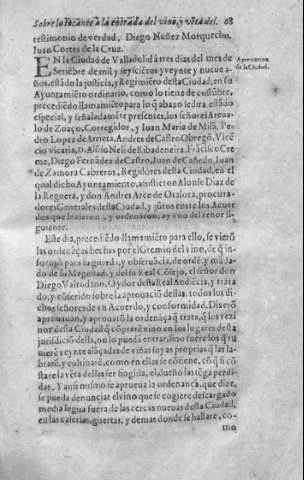 Sobre lo tocante a la entrada del vino, y visita del. 68
testimonio de verdad, Diego Nuñez Morquecho,
Iuan Cortes de la Cruz.
EN la Ciudad de Valladolid a tres dias del mes de
Setiẽbre de mil y seyscientos y veynte y nueue a-
ños, estãdo la justicia, y Regimiẽto desta Ciudad, en su
Ayuntamiẽto ordinario, como lo tiene de costũbre,
precediẽdo llamamiẽto para lo q̃ abaxo se dira, estãdo
especial, y señaladamẽte presentes, los señores
de Zuaço, Corregidor, y Iuan Maria de Milã, Pe-
dro Lopez de Arrieta, Andres de Castro Obregõ, Vi-
cario, D. Alõso Neli de Ribadeneira, Frãcisco Cre
ma, Diego Fernãdez de Castro, Iuan de Cañedo, Iuan
de Zamora Cabreros, Regidores desta Ciudad, en el
qual dicho Ayuntamiento, assistieron Alonso Diaz de
la Reguera, y don Andres Arce de Otalora, procura-
dores Generales desta Ciudad, y jũtos entre los Acuer
dos que hizieron, y ordenaron, ay vno del tenor si-
guiente.
Este dia, precediẽdo llamamiẽto para ello, se vierõ
las ordenãças hechas por el Gremio del vino, de q̃ in-
for para su guarda, y obseruãcia, de ordẽ, y mãda
do de su Magestad, y del su Real Cõsejo, el señor don
Diego Valtodano, Oydor desta Real Audiẽcia, y trata
do, y cõferido sobre la aprouaciõ dellas, todos los di-
chos señores de vn Acuerdo, y conformidad, Dixerõ
aprouauan, y aprouarõ la ordenãça q̃ trata, q̃ los vezi
nos desta Ciudad q̃ cõprarẽ vino en los lugares desta
jurisdiciõ della, no lo pueda entrar, sino fuere los q̃ tu
uierẽ veynte alãçadas de viñas suyas proprias q̃ las la-
brarẽ, y cultiuarẽ, como en ellas se cõtiene, cõ q̃ si cõ
stare la vẽta dellas ser fingida, el dueño las tẽga perdi-
das. Y ansi mismo se aprueua la ordenança, que dize,
se pueda denunciar el vino que se cogiere descargado
media legua fuera de las cercas nueuas desta Ciudad,
en las caserias, guertas, y demas donde se hallare, co-
mo
Ayuntamiento
de la Ciudad.